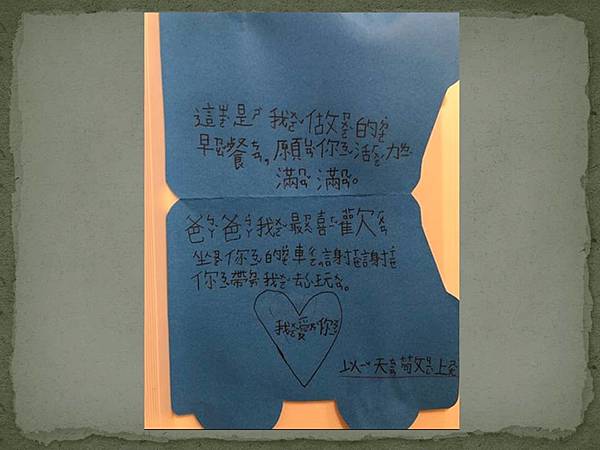 這是我做的
早餐,願你活力
滿滿。
爸爸我最喜歡
坐你的車,謝謝
你帶我去玩。
我愛你
以天敬上